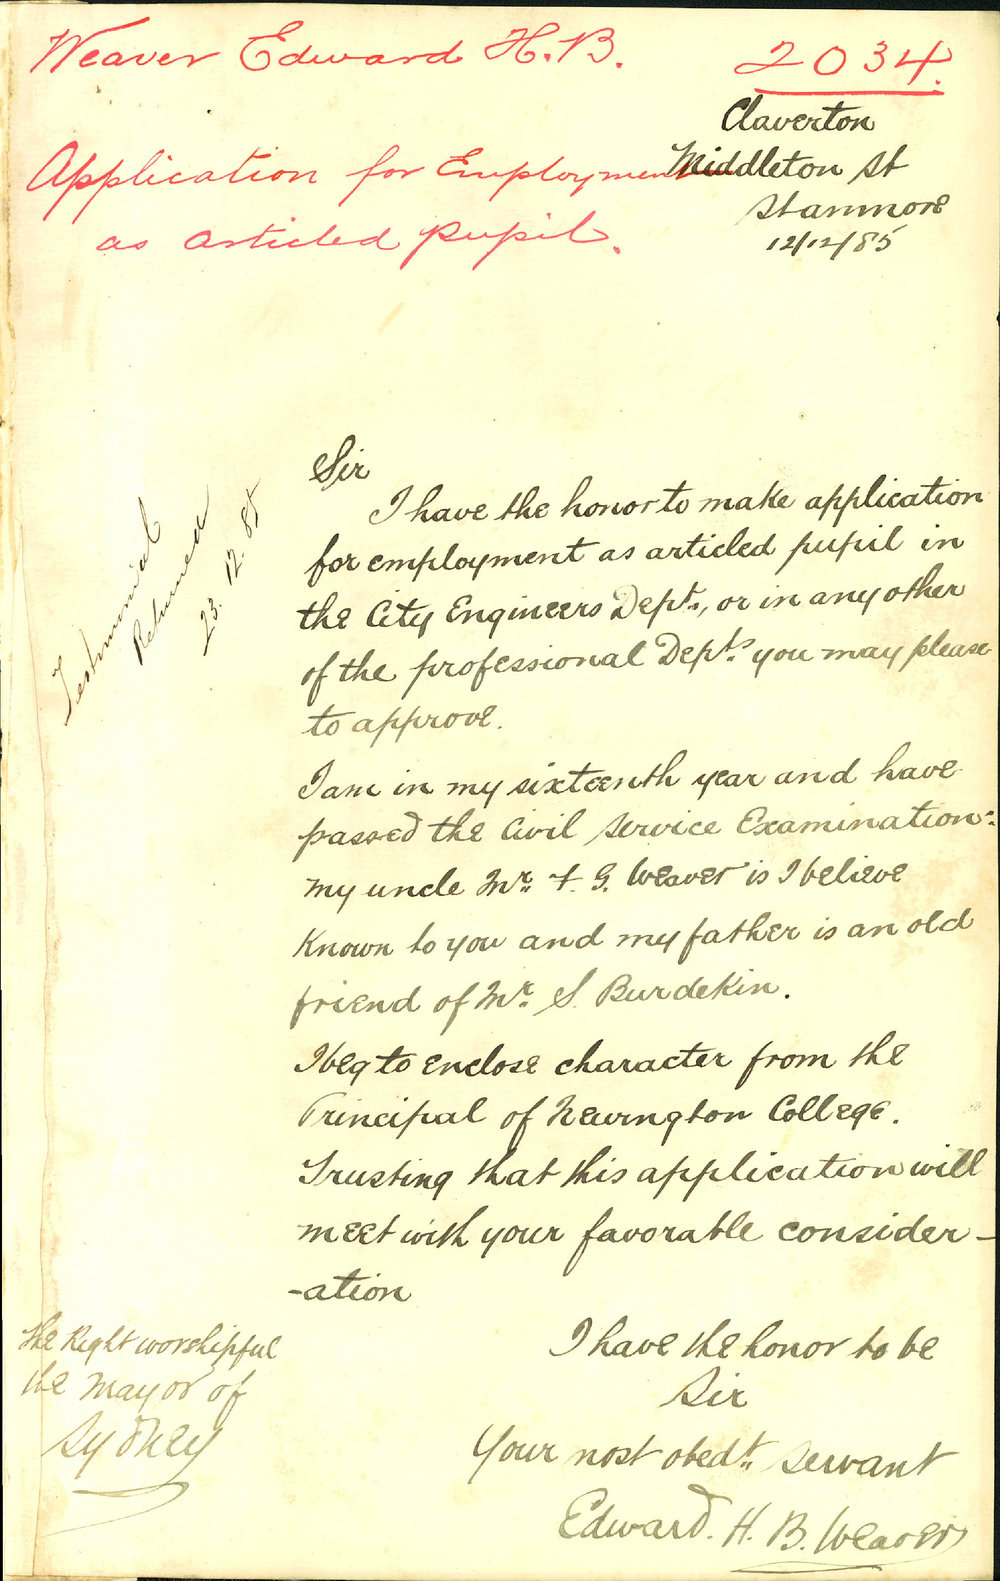 Weaver Edward H. B.
2034.
Application for Employment
as articled pupil.
Claverton
Middleton St
Stanmore
12/12/85
Testimonial
Returned
23.12.85
Sir
I have the honor to make application
for employment as articled pupil in
the City Engineers Dept., or in any other
of the professional Depts. you may please
to approve.
I am in my sixteenth year and have
passed the Civil Service Examination:
my uncle Mr. F. G. Weaver is I believe
known to you and my father is an old
friend of Mr. S. Burdekin.
I beg to enclose character from the
Principal of Newington College.
Trusting that this application will
meet with your favorable consider-
-ation
I have the honor to be
Sir
Your most obedt. servant
Edward. H. B. Weaver
The Right worshipful
the Mayor of
Sydney